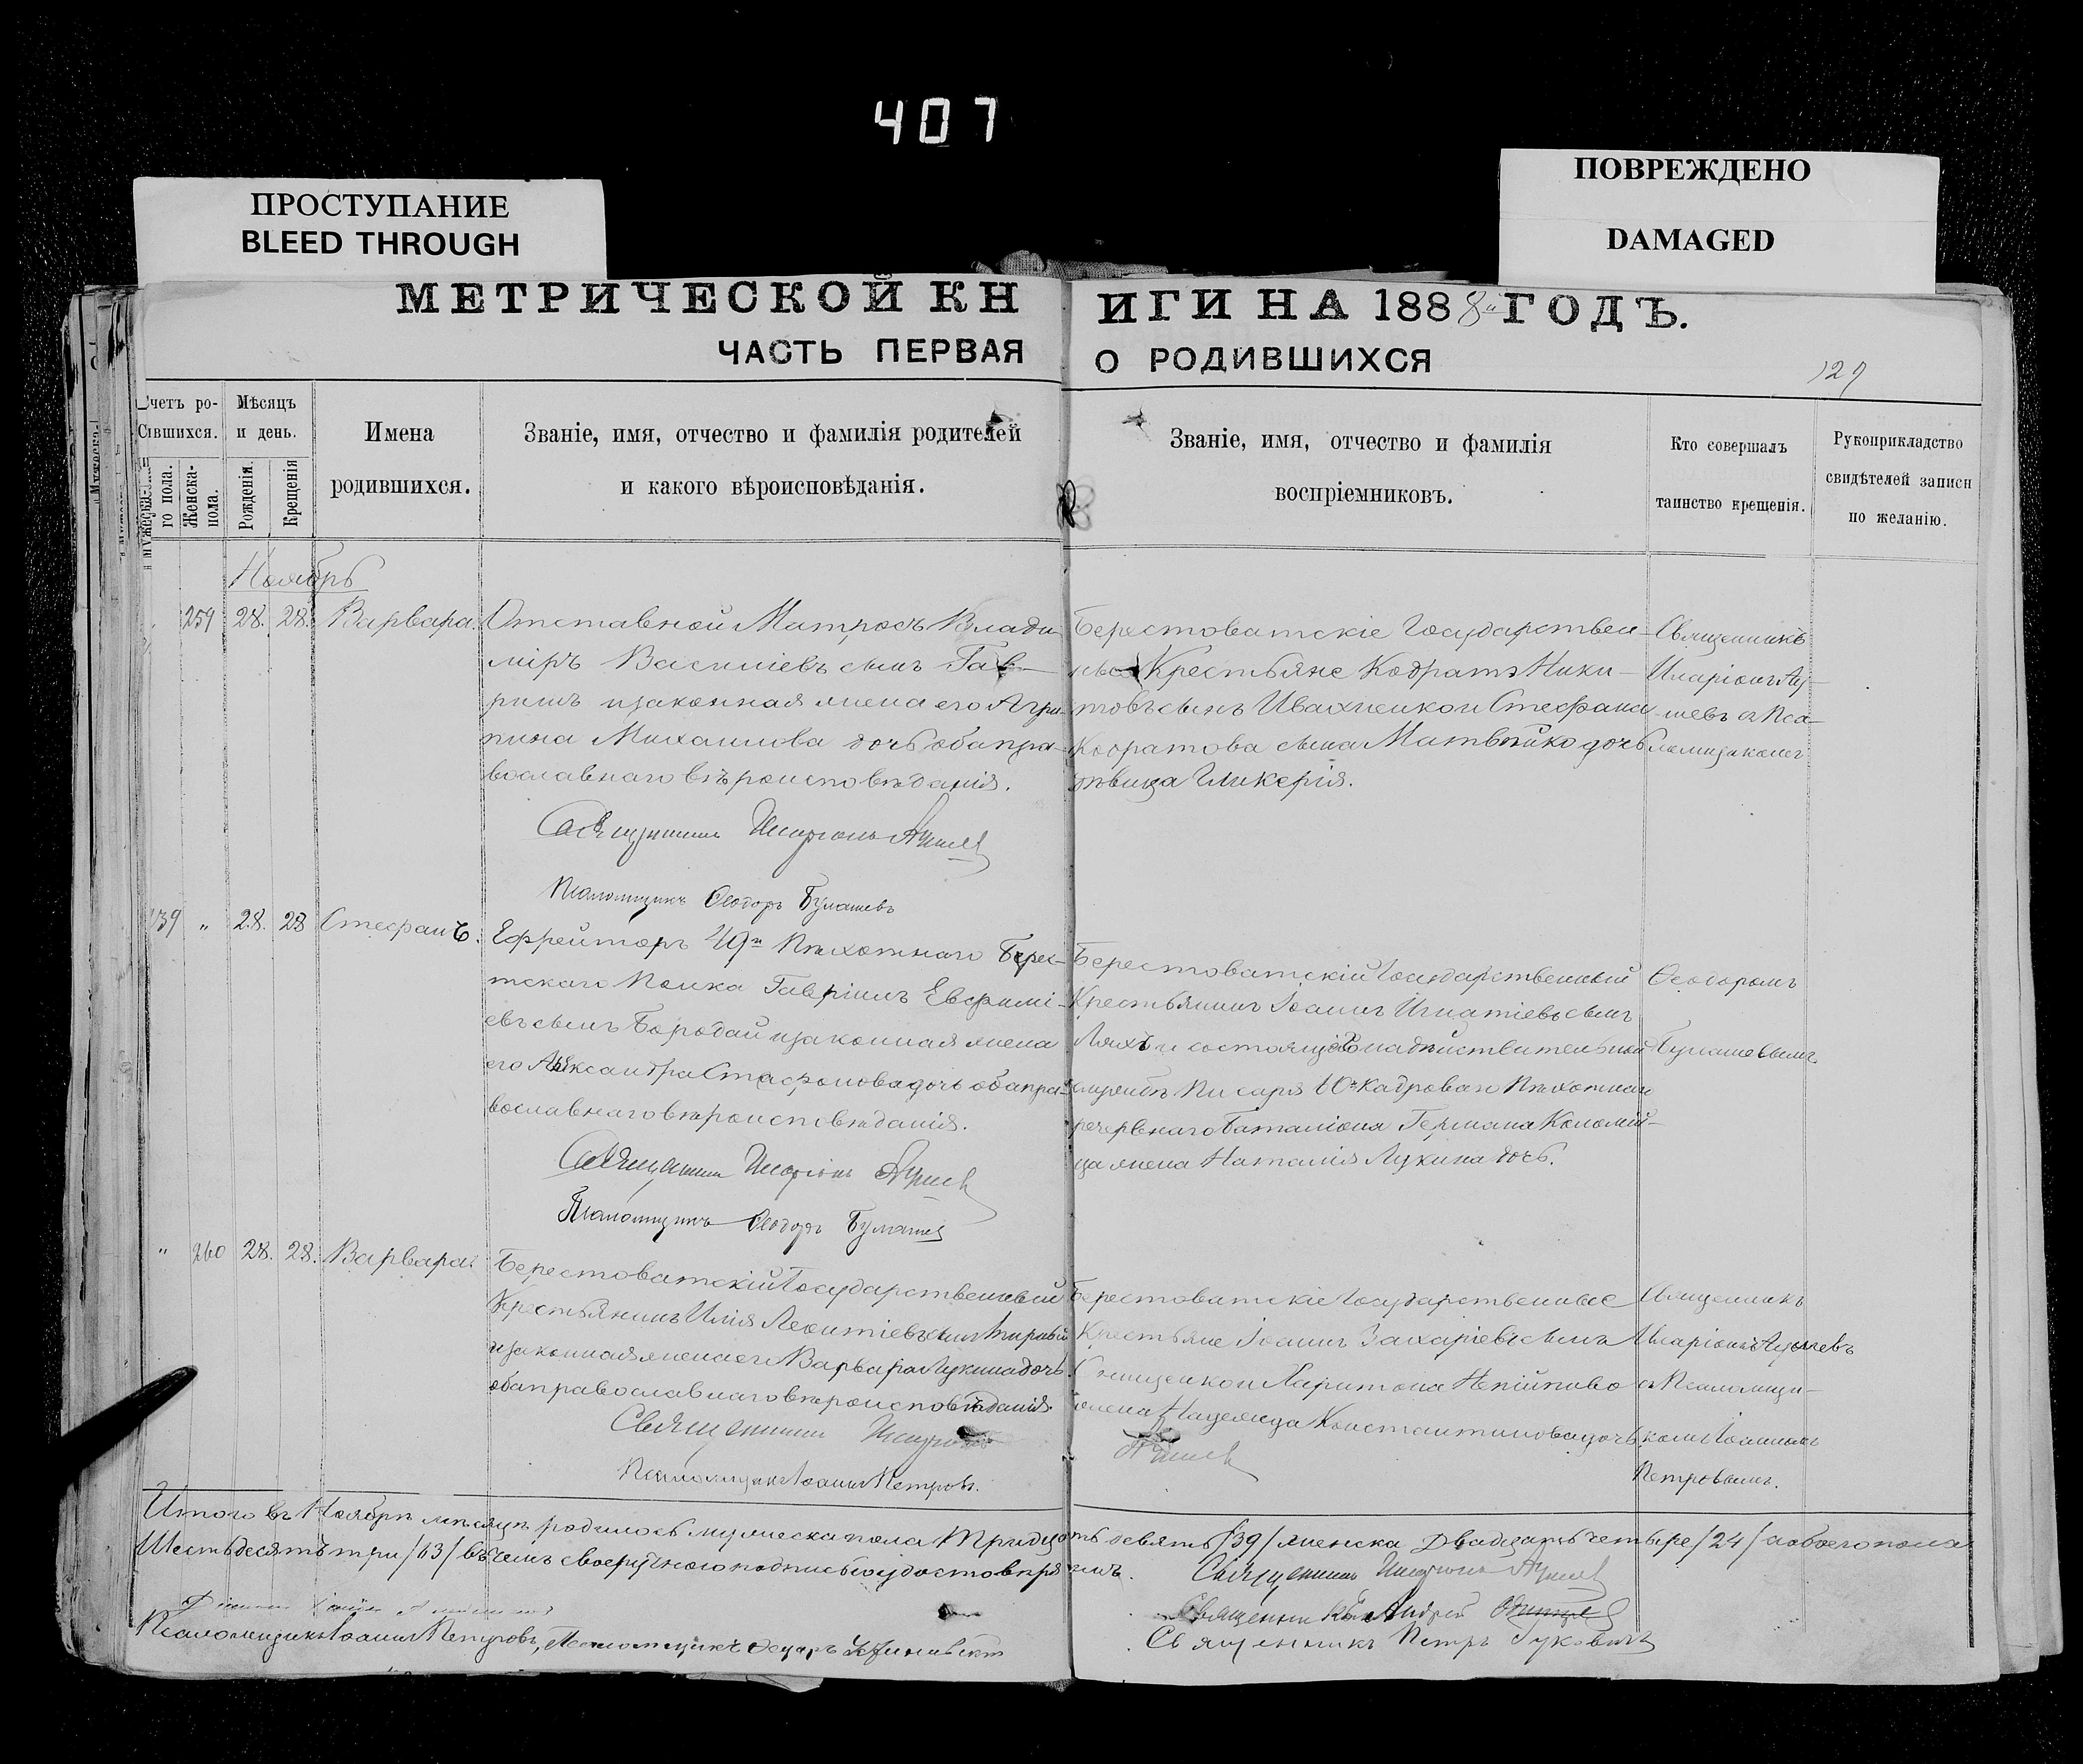 407
ПРОСТУПАНИЕ
BLEED THROUGH
ПОВРЕЖДЕНО
DAMAGED
МЕТРИЧЕСКОЙ КНИГИ НА 1888 ГОДЪ.
ЧАСТЬ ПЕРВАЯ О РОДИВШИХСЯ
129
Счетъ ро-
Мѣсяцъ
и день.
Мужеска-
го пола.
Женска-
пола.
Рожденія.
Крещенія
Имена
родившихся.
Званіе, имя, отчество и фамилія родителей
и какого вѣроисповѣданія.
Званіе, имя, отчество и фамилія
воспріемниковъ.
Кто совершалъ
таинство крещенія.
Рукоприкладство
свидѣтелей записи
по желанію.
Ноябрь
259 28. 28. Варвара.
Отставной Матросъ Влади
міръ Васильевъ сынъ Гав-
и законная жена его Агри-
пина Михаилова дочь оба пра-
вославнаго вѣроисповѣданія.
Священникъ Иларіонъ
Псаломщикъ Ѳеодоръ Булашевъ
Берестоватскіе Государствен-
Крестьяне Кодратъ Ники-
товъ сынъ Ивахненко и Стефана
Кодратова сына Матвѣйко дочь
дѣвица Гликерія.
Священникъ
Иларіонъ
139 „ 28. 28 Стефанъ.
Ефрейторъ 49го Пѣхотнаго Брест-
тскаго Полка Гавріилъ Евфимі-
евъ сынъ Бородай и законная жена
его Александра Стефанова дочь оба пра-
вославнаго вѣроисповѣданія.
Священникъ Иларіонъ
Псаломщикъ Ѳеодоръ Булашевъ
Берестоватскій Государственный
Крестьянинъ Іоаннъ Игнатіевъ сынъ
Ляхъ и состоящаго на дѣйствительной
службѣ Писаря 10го Кадроваго Пѣхотнаго
резервнаго Баталіона Германа Коломій-
ца жена Наталія Лукина дочь.
Ѳеодоромъ
Булашевымъ
„ 260 28. 28. Варвара.
Берестоватскій Государственный
Крестьянинъ Илія Леонтіевъ сынъ
и законная жена его Варвара Лукина дочь
оба православнаго вѣроисповѣданія.
Священникъ Иларіонъ
Псаломщикъ Іоаннъ Петровъ.
Берестоватскіе Государственные
Крестьяне Іоаннъ Захаріевъ сынъ
и Харитона
жена Надежда Константинова дочь
Священникъ
Иларіонъ
съ Псаломщи-
комъ Іоанномъ
Петровымъ.
Итого въ Ноябрѣ мѣсяцѣ родилось мужеска пола Тридцать девять /39/ женска Двадцать четыре /24/ а обоего пола
Шестьдесятъ три /63/ въ чемъ своеручною подписью удостовѣряемъ.
Священникъ Иларіонъ
Священникъ Андрей
Псаломщикъ Іоаннъ Петровъ, Псаломщикъ
Священникъ Петръ